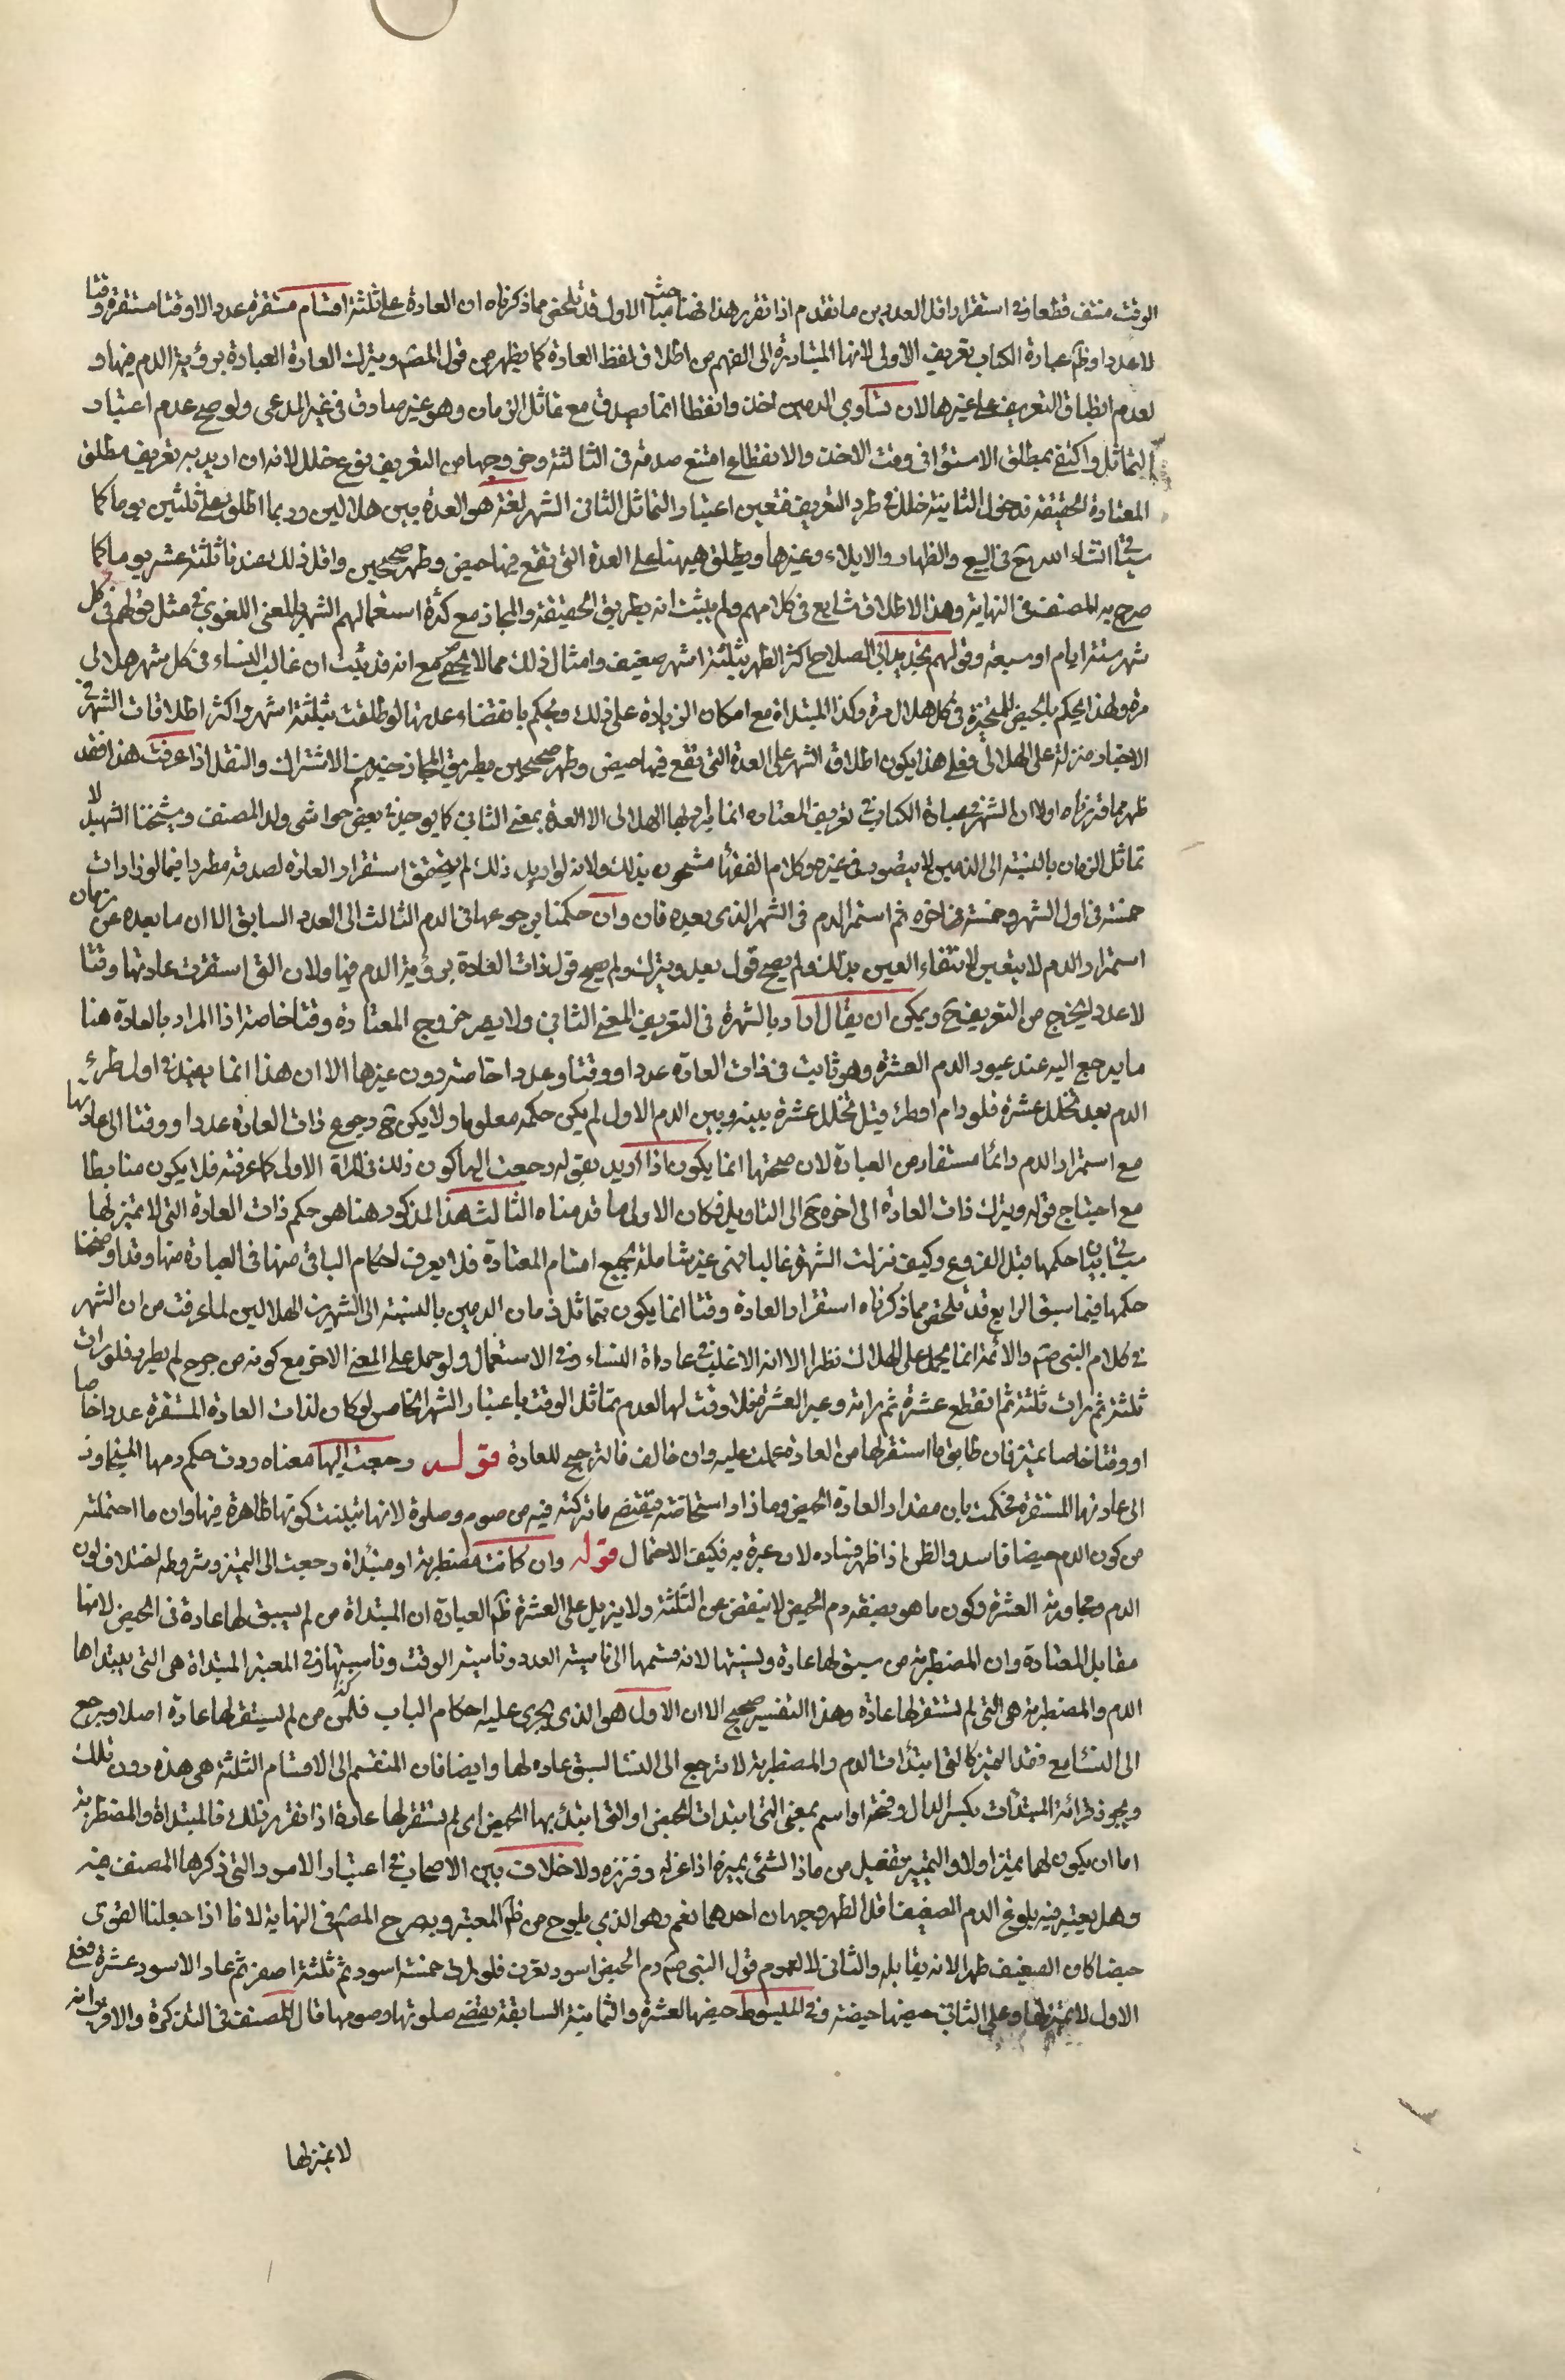 الوقت منتف قطعا وفي استقرار اقل العددين ما تقدم اذا تقرر هذا فهنا مباحث الاول قد تلخص مما ذكرناه ان العادة على ثلثة اقسام مستقرة عددا لا وقتا مستقرة وقتا
لا عددا وظ عبارة الكتاب تعريف الاولى لانها المتبادرة الى الفهم من اطلاق لفظ العادة كما يظهر من قول المص وتترك العادة العبادة برؤية الدم فيها و
لعدم انطباق التعريف على غيرها لان تساوي الدمين اخذا وانقطاعا انما يصدق مع تماثل الزمان وهو غير صادق في غير المدعى ولو صح عدم اعتبار
التماثل واكتفى بمطلق الاستواء في وقت الاخذ والانقطاع امتنع صدقه في الثالثة وخروجها من التعريف يوقع خللا لانه ان اريد به تعريف مطلق
المعتادة الحقيقة فدخول الثانية خلل في طرد التعريف فتعين اعتبار التماثل الثاني الشهر لغة هو العدة بين هلالين وربما اطلق على ثلثين يوما كما
سيأتي انشاء الله تع في البيع والظهار والايلاء وغيرها ويطلق هيهنا على العدة التي تقع فيها حيض وطهر صحيحين واقل ذلك عندنا ثلثة عشر يوما كما
صرح به المصنف في النهاية وهذا الاطلاق شايع في كلامهم ولم يثبت انه بطريق الحقيقة والمجاز مع كثرة استعمالهم الشهر بالمعنى اللغوي في مثل قولهم في كل
شهر ستة ايام او سبعة وقولهم تحديد ابي الصلاح اكثر الطهر بثلثة اشهر ضعيف وامثال ذلك مما لا يحصى مع انه قد ثبت ان غالب النساء في كل شهر هلالي
مرة ولهذا يحكم بالحيض للمتحيرة في كل هلال مرة وكذا المبتداة مع امكان الزيادة على ذلك ويحكم بانقضاء عدتها لو طلقت بثلثة اشهر واكثر اطلاقات الشهر في
الاخبار منزلة على الهلالي فعلى هذا يكون اطلاق الشهر على العدة التي تقع فيها حيض وطهر صحيحين بطريق المجاز خير من الاشتراك والنقل اذا عرفت هذا فقد
ظهر مما قررناه اولا ان الشهر في عبارة الكتاب في تعريف المعتادة انما يراد بها الهلالي لا العدة بمعنى الثاني كما يوجد في بعض حواشي ولد المصنف وشيخنا الشهيد لا
تماثل الزمان بالنسبة الى الدمين لا يتصور في غيره وكلام الفقهاء مشحون بذلك ولانه لو اريد ذلك لم يتحقق استقرار العادة لصدقه مطردا فيما لو رات
خمسة في اول الشهر وخمسة في اخره ثم استمر الدم في الشهر الذي بعده فان وان حكمنا برجوعها في الدم الثالث الى العدد السابق الا ان ما بعده من زمان
استمرار الدم لا يتعين لانتفاء العين بذلك ولم يصح قول بعد ويترك ولم يصح قول ذات العادة برؤية الدم فيها ولان التي استقرت عادتها وقتا
لا عددا يخرج من التعريف ح ويمكن ان يقال اراد بالشهر في التعريف المعنى الثاني ولا يضر خروج المعتادة وقتا خاصة اذا المراد بالعادة هنا
ما يرجع اليه عند عبور الدم العشرة وهو ثابت في ذات العادة عددا ووقتا وعددا خاصة دون غيرها الا ان هذا انما يفيد في اول طرئ
الدم بعد تخلل عشرة فلو دام او طرئ قبل تخلل عشرة بينه وبين الدم الاول لم يكن حكمه معلوما ولا يكون ح رجوع ذات العادة عددا ووقتا الى عادتها
مع استمرار الدم دائما مستفاد من العبارة لان صحتها انما يكون اذا اريد بقوله رجعت اليها كون ذلك في المرة الاولى كما عرفته فلا يكون منا بطا
مع احتياج قوله ويترك ذات العادة الى اخره ح الى التاويل فكان الاولى ما قدمناه الثالث هذا المذكور هنا هو حكم ذات العادة التي لا تميز لها
سيأتي بيان احكمها قبل الفروع وكيف نزلت الشهر غالبا فهي غير شاملة لجميع اقسام المعتادة فلا يعرف احكام الباقي منها في العبارة منها وقد اوضحنا
حكمها فيما سبق الرابع قد تلخص مما ذكرناه استقرار العادة وقتا انما يكون بتماثل زمان الدمين بالنسبة الى الشهرين الهلالين لما عرفت من ان الشهر
في كلام النبي صم والائمة انما يحمل على الهلال نظرا الا انه الاغلب في عادات النساء وفي الاستعمال ولو حمل على المعنى الاخر مع كونه من جرح لم يطرد فلو رات
ثلثة ثم رات ثلثة ثم انقطع عشرة ثم راته وعبر العشرة فلا وقت لها لعدم تماثل الوقت باعتبار الشهر الخاص لو كان لذات العادة المستقرة عددا خاصا
او وقتا خاصا تميز فان طابق ما استقر لها من العادة عملت عليه وان خالف فالترجيح للعادة قوله رجعت اليها معناه ردت حكم دمها المتجاوز
الى عادتها المستقرة فحكمت بان مقدار العادة الحيض وما زاد استحاضة فتقضي ما تركته فيه من صوم وصلوة لانها تبينت كونها طاهرة فيها وان ما احتملته
من كون الدم حيضا فاسد والظن اذا ظهر فساده لا عبرة به فكيف الاحتمال قوله وان كانت مضطربة او مبتداة رجعت الى التميز وشروطه اختلاف لون
الدم ومجاوزته العشرة وكون ما هو بصفة دم الحيض لا ينقص عن الثلثة ولا يزيد على العشرة ظ العبارة ان المبتداة من لم يسبق لها عادة في الحيض لانها
مقابل المعتادة وان المضطربة من سبق لها عادة ونسيتها لانه قسمها الى ناسية العدد وناسية الوقت وناسيتهما وفي المعتبر المبتداة هي التي يبتداها
الدم والمضطربة هي التي لم تستقر لها عادة وهذا التفسير صحيح الا ان الاول هو الذي يجرى عليه احكام الباب فان من لم يستقر لها عادة اصلا ويرجع
الى النساء مع فقد التميز كالتي ابتدات الدم والمضطربة لا ترجع الى النساء لسبق عاده لها وايضا فان المنقسم الى الاقسام الثلثة هي هذه دون تلك
ويجوز قرائة المبتدات بكسر الدال وفتحه او اسم بمعنى التي ابتدات الحيض او التي ابتدئ بها الحيض اي لم تستقر لها عادة اذا تقرر ذلك فالمبتداة والمضطربة
اما ان يكون لهما تميز او لا والتمييز تفعيل من ماز الشئ يميزه اذا عزله وفرزه ولا خلاف بين الاصحاب في اعتبار الامور التي ذكرها المصنف فيه
وهل يعتبر فيه بلوغ الدم الضعيف اقل الطهر وجهان احدهما نعم وهو الذي يلوح من ظ المعتبر وبصرح المص في النهاية لانا اذا جعلنا القوى
حيضا كان الضعيف طهرا لانه يقابله والثاني لا لعموم قول النبي صم دم الحيض اسود يعرف فلو رات خمسة اسود ثم ثلثة اصفر ثم عاد الاسود عشرة فعلى
الاول لا تميز لها وعلى الثاني حيضها حيضة وفي المبسوط حيضها العشرة والثمانية السابقة يقضي صلوتها وصومها قال المصنف في التذكرة والاقرب انه
لا تميز لها